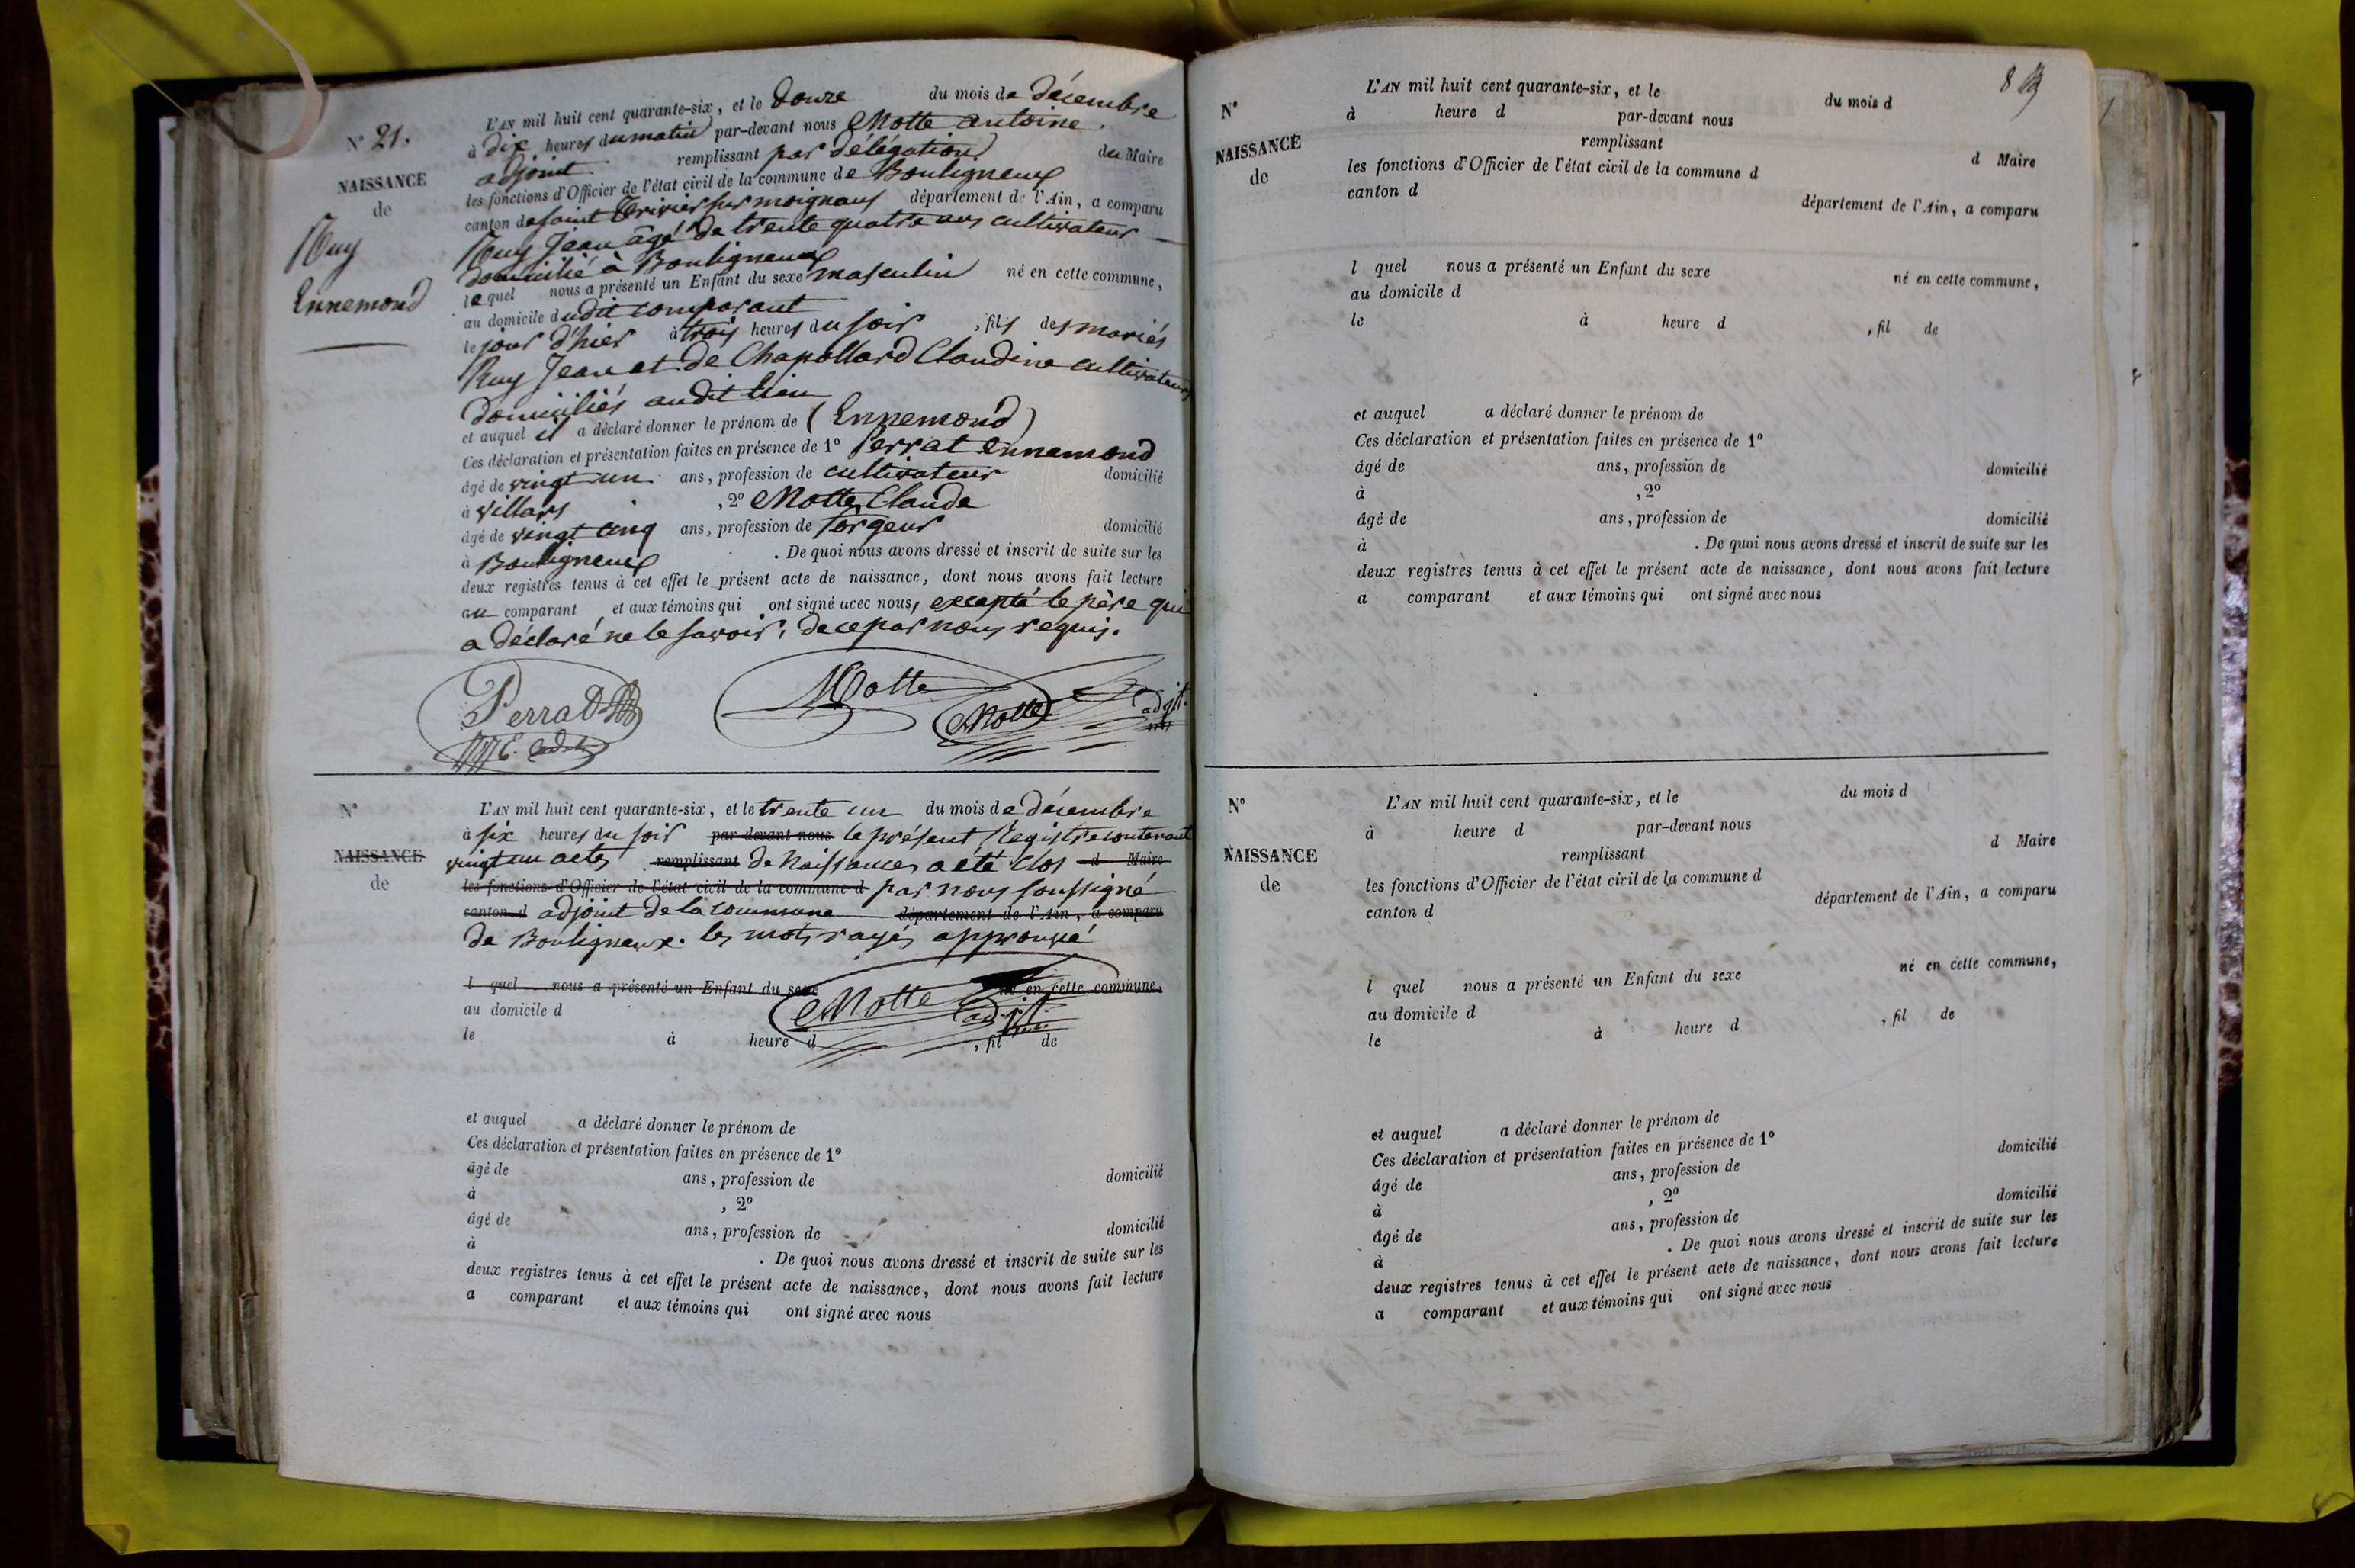 N° 21.
NAISSANCE
de
Ruy
Ennemond
L'AN mil huit cent quarante-six, et le Douze du mois de décembre
à dix heures du matin par-devant nous Motte antoine
adjoint remplissant par délégation du Maire
les fonctions d'Officier de l'état civil de la commune de Bouligneux
canton de saint Trivier sur moignans département de l'Ain, a comparu
Ruy Jean âgé de trente quatre ans cultivateur
domicilié à Bouligneux
lequel nous a présenté un Enfant du sexe masculin né en cette commune,
au domicile dudit comparant
le jour d'hier à trois heures du soir, fils des mariés
Ruy Jean et de Chapollard Claudine cultivateurs
domiciliés audit lieu
et auquel il a déclaré donner le prénom de (Ennemond)
Ces déclaration et présentation faites en présence de 1° Perrat ennemond
âgé de vingt un ans, profession de cultivateur domicilié
à villars, 2° Motte Claude
âgé de vingt cinq ans, profession de forgeur domicilié
à Bouligneux. De quoi nous avons dressé et inscrit de suite sur les
deux registres tenus à cet effet le présent acte de naissance, dont nous avons fait lecture
au comparant et aux témoins qui ont signé avec nous, excepté le père qui
a déclaré ne le savoir, de ce par nous requis.
Perrat Motte Motte adjt.
N°
NAISSANCE
de
L'AN mil huit cent quarante-six, et le trente un du mois de décembre
à six heures du soir par-devant nous le présent Registre contenant
vingt un actes remplissant de Naissances a été clos d Maire
les fonctions d'Officier de l'état civil de la commune d par nous soussigné
canton d adjoint de la commune département de l'Ain, a comparu
de Bouligneux. les mots rayés approuvé
l quel nous a présenté un Enfant du sexe né en cette commune,
Motte adjt.
au domicile d
le à heure d, fil de
et auquel a déclaré donner le prénom de
Ces déclaration et présentation faites en présence de 1°
âgé de ans, profession de domicilié
à, 2°
âgé de ans, profession de domicilié
à. De quoi nous avons dressé et inscrit de suite sur les
deux registres tenus à cet effet le présent acte de naissance, dont nous avons fait lecture
a comparant et aux témoins qui ont signé avec nous
N°
NAISSANCE
de
L'AN mil huit cent quarante-six, et le du mois d
à heure d par-devant nous
remplissant d Maire
les fonctions d'Officier de l'état civil de la commune d
canton d département de l'Ain, a comparu
l quel nous a présenté un Enfant du sexe né en cette commune,
au domicile d
le à heure d, fil de
et auquel a déclaré donner le prénom de
Ces déclaration et présentation faites en présence de 1°
âgé de ans, profession de domicilié
à, 2°
âgé de ans, profession de domicilié
à. De quoi nous avons dressé et inscrit de suite sur les
deux registres tenus à cet effet le présent acte de naissance, dont nous avons fait lecture
a comparant et aux témoins qui ont signé avec nous
N°
NAISSANCE
de
L'AN mil huit cent quarante-six, et le du mois d
à heure d par-devant nous
remplissant d Maire
les fonctions d'Officier de l'état civil de la commune d
canton d département de l'Ain, a comparu
l quel nous a présenté un Enfant du sexe né en cette commune,
au domicile d
le à heure d, fil de
et auquel a déclaré donner le prénom de
Ces déclaration et présentation faites en présence de 1°
âgé de ans, profession de domicilié
à, 2°
âgé de ans, profession de domicilié
à. De quoi nous avons dressé et inscrit de suite sur les
deux registres tenus à cet effet le présent acte de naissance, dont nous avons fait lecture
a comparant et aux témoins qui ont signé avec nous